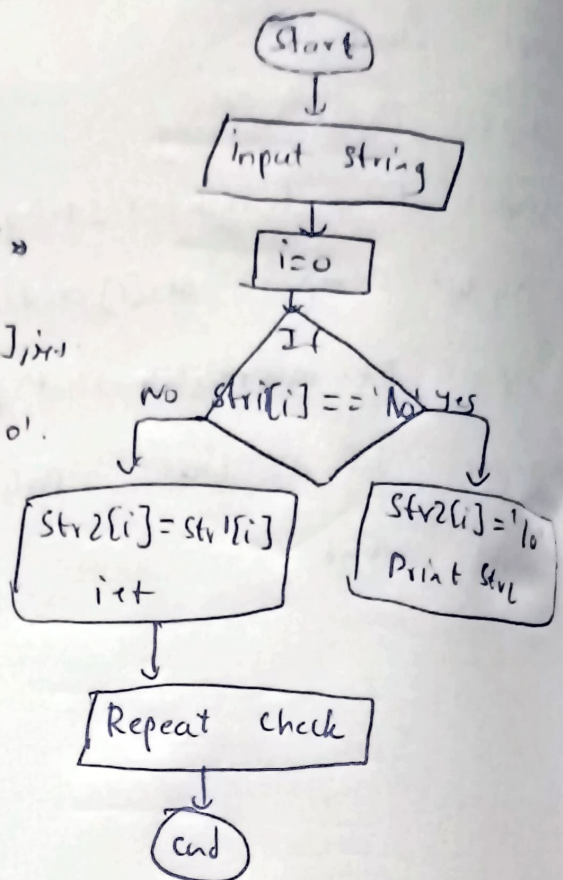 Start
input string
i=0
],i++
o'.
If
No str1[i] == '\o' yes
Str2[i] = str1[i]
i++
Str2[i] = '\o
Print Str2
Repeat check
end